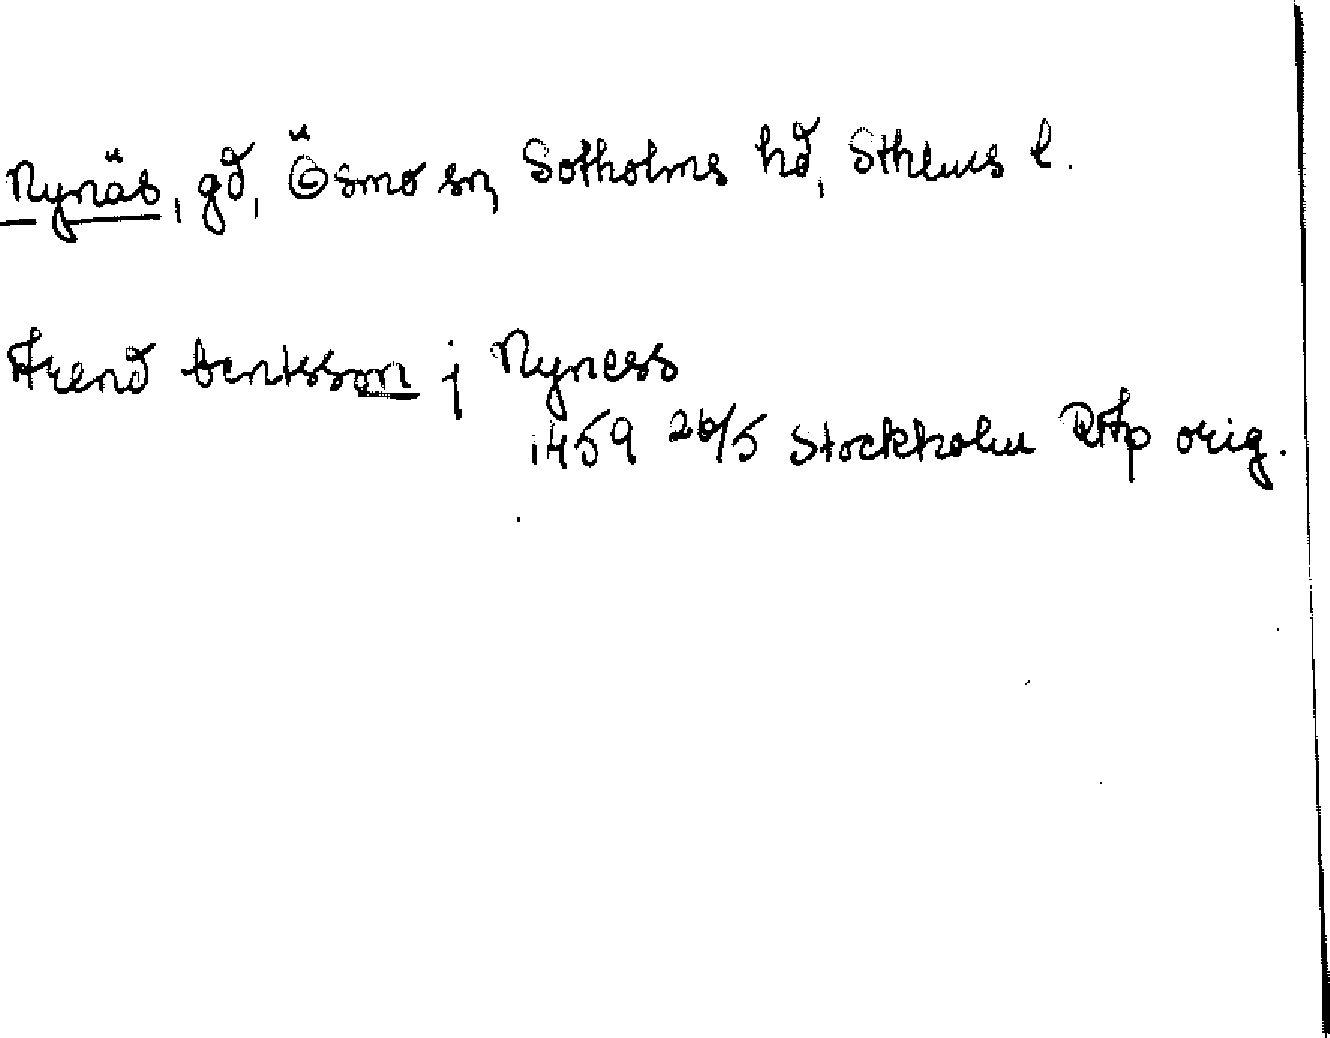 Nynäs, gd, Ösmo sn, Sotholms hd, Sthlms l.
Arend benktsson j Nyness
1459 26/5 Stockholm RAp orig.